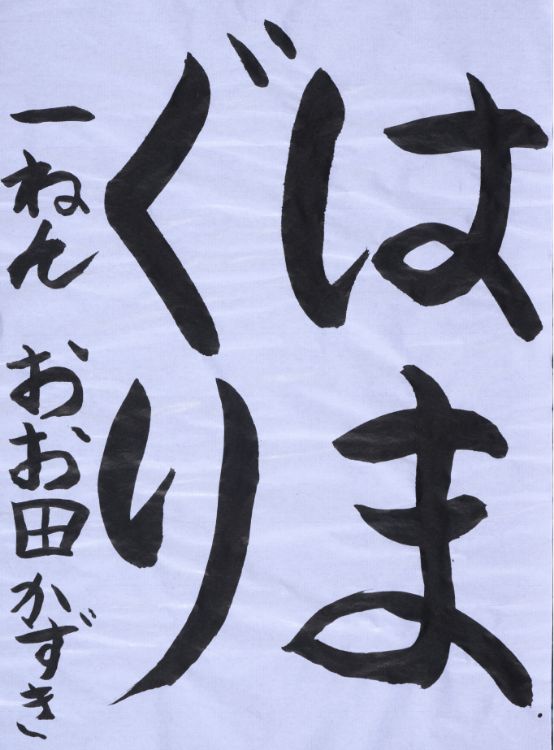 はま
ぐり
一ねん おお田かずき